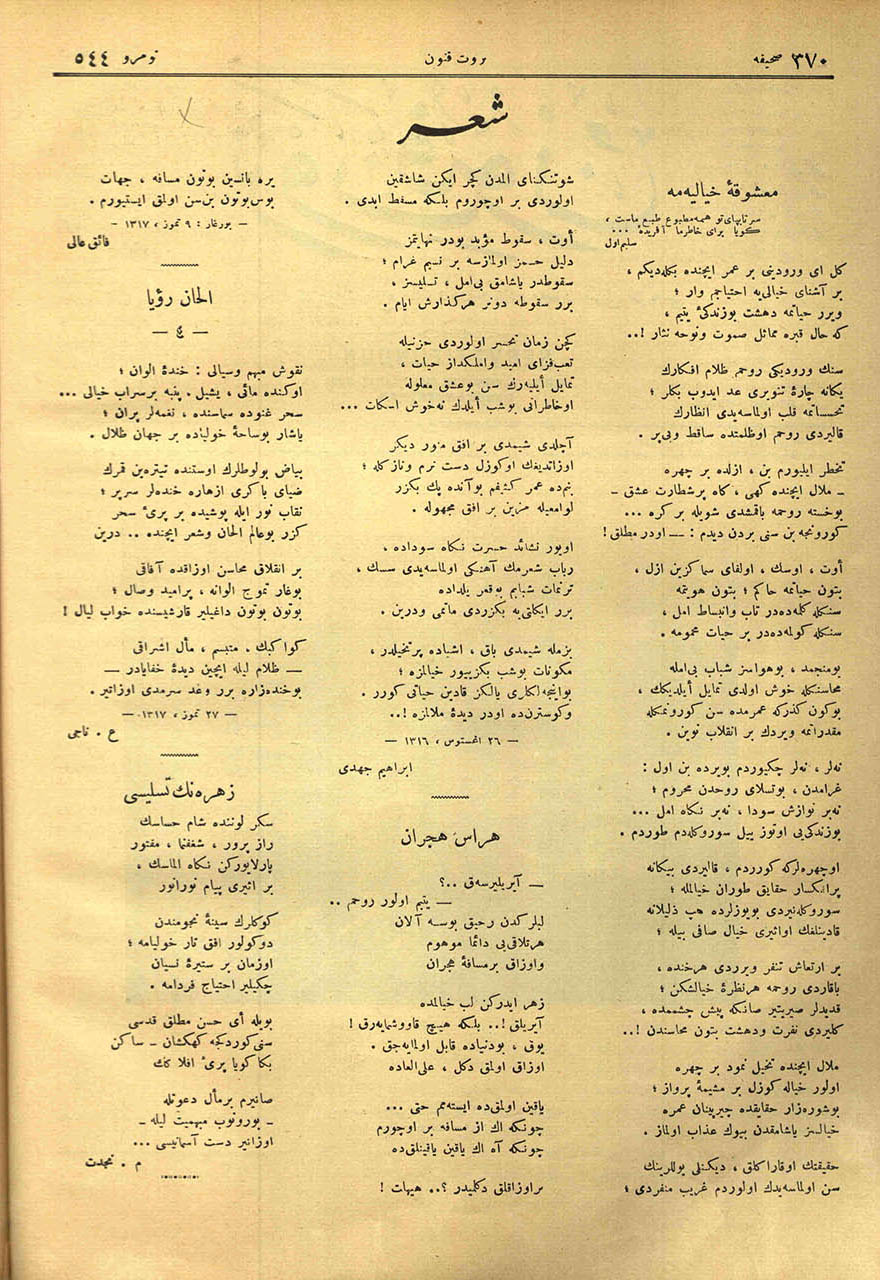 صحیفه ٣٧٠
ثروت فنون
نومرو ٥٤٤
شعر
معشوقهٔ خیالیه‌مه
سرتاپای تو همه مطبوع طبع ماست ،
گویا برای خاطرما آفریدهٔ ...
سلیم اول
كل ای ورودینی بر عمر ایچنده بكله‌دیكم ،
بر آشنای خیالی‌یه احتیاجم وار ؛
ویرر حیاتمه دهشت بوزندكیٔ یتیم ،
كه حال قبره مماثل صموت ونوحه نثار !..
سنك ورودیكی روحم ظلام افكارك
یكانه چارهٔ تنویری عد ایدوب بكلر ؛
تحسساتمه قلب اولماسه‌یدی انظارك
قالیردی روحم اوظلمتده ساقط وبی‌پر .
تخطر ایلیورم بن ، ازلده بر چهره
ـ ملال ایچنده كهی ، كاه پرشطارت عشق ـ
بوخسته روحمه باقمشدی شویله بر كره ...
كورونجه بن سنی بردن دیدم : — اودر مطلق !
أوت ، اوسك ، اولفای سما كزین ازل ،
بتون حیاتمه حاكم ؛ بتون هویتمه
سنكله كلمه‌ده‌در تاب وانبساط امل ،
سنكله كولمه‌ده‌در بر حیات عمومه .
بومنجمد ، بوهواسز شباب بی‌امله
محاسنكله خوش اولدی تمایل أیلدیكك ،
بوكون كذركه عمرمده سن كورونمكله
مقدراتمه ویردك بر انقلاب نوین .
نه‌لر ، نه‌لر چكیوردم بویرده بن اول :
غرامدن ، بوتسلای روحدن محروم ؛
نه‌بر نوازش سودا ، نه‌بر نكاه امل ...
بوزندكی‌یی اوتوز ییل سوروكله‌دم طوردم .
اوچهره‌لركه كوردم ، قالیردی بیكانه
پرانكسار حقایق طوران خیالمله ؛
سوروكله‌نیردی بویوزلرده هپ ذلیلانه
قادینلغك اواثیری خیال صافی بیله ؛
بر ارتعاش تنفر ویرردی هرخنده ،
باقاردی روحمه هرنظرهٔ خیالشكن ؛
قدیدلر صیریتیر صانكه پیش چشممده ،
كلیردی نفرت ودهشت بتون محاسندن !..
ملال ایچنده تخیل نمود بر چهره
اولور خیاله كوزل بر مشیمهٔ پرواز ؛
بوشوره‌زار حقایقده چیرپینان عمره
خیالسز یاشامقدن بیوك عذاب اولماز .
حقیقتك اوقاراكلق ، دیكنلی یوللرینك
سن اولماسه‌یدك اولوردم غریب منفردی ؛
شوتنكنای المدن كچر ایكن شاشقین
اولوردی بر اوچوروم بلكه مسقط ابدی .
أوت ، سقوط مؤبد بودر نهایتمز
دلیل حسمز اولمازسه بر نسیم غرام ؛
سقوطدر یاشامق بی‌امل ، تسلیسز ،
برر سقوطه دونر هركذارش ایام .
كچن زمان تحسر اولوردی حزنیله
تعب‌فزای امید واملكداز حیات ،
تمایل أیلیه‌رك سن بوعشق معلوله
اوخاطراتی بوشب أیلدك نه‌خوش اسكات ...
آچلدی شیمدی بر افق منور دیكر
اوزاتدیغك اوكوزل دست نرم ونازكله ؛
بنم‌ده عمر كثیفم بوآنده پك بكزر
لوامعیله مزین بر افق مجهوله .
اویور نشائد حسرت نكاه سوداده ،
رباب شعرمك آهنكی اولماسه‌یدی سسك ،
ترنمات شبابم بوقعر یلداده
برر ایكلتی‌یه بكزردی ماتمی ودرین .
بزمله شیمدی باق ، اشباده پرتخیلدر ،
مكونات بوشب بكزیور خیالمزه ؛
بواینجه‌لكلری یالكز قادین حیاتی كورر .
وكوسترن‌ده اودر دیدهٔ ملالمزه !..
— ٢٦ اغستوس ، ١٣١٦ —
ابراهیم جهدی
هراس هجران
— آیریلیرسه‌ق ..؟
— یتیم اولور روحم ..
لیلرڭدن رحیق بوسه آلان
هرتلاقی‌یی دائما موهوم
واوزاق برمسافهٔ هجران
زهر ایدركن لب خیالمده
آیریلق !.. بلكه هیچ قاووشمایه‌رق !
یوق ، بودنیاده قابل اولمایه‌جق .
اوزاق اولمق دكل ، علی‌العاده
یاقین اولمق‌ده ایسته‌مم حتی ...
چونكه اك از مسافه بر اوچورم
چونكه آه اك یاقین یاقینلق‌ده
براوزاقلق دكلمیدر ؟.. هیهات !
یره باتسین بوتون مسافه ، جهات
بوس‌بوتون بن‌سن اولمق ایستیورم .
— بورغاز : ٩ تموز ، ١٣١٧ —
فائق عالی
الحان رؤیا
— ٤ —
نقوش مبهم وسیالی : خندهٔ الوان ؛
اوكنده مائی ، یشیل . پنبه برسراب خیالی ...
سحر غنوده سماسنده ، نغمه‌لر پران ؛
یاشار بوساحهٔ خولیاده بر جهان ظلال .
بیاض بولوطلرك اوستنده تیتره‌ین قمرك
ضیای باكری ازهاره خنده‌لر سرپر ؛
نقاب نور ایله پوشیده بر پریٔ سحر
كزر بوعالم الحان وشعر ایچنده .. درین
بر انفلاق محاسن اوزاقده آفاقی
بوغار تموج الوانه ، پرامید وصال ؛
بوتون بوتون داغیلیر قارشیسنده خواب لیال !
كواكبك . متبسم ، مأل اشراقی
— ظلام لیله ایچین دیدهٔ خفایادر —
بوخنده‌زاره برر وعد سرمدی اوزاتیر .
— ٢٧ تموز ، ١٣١٧ —
ع . ناجی
زهره‌نك تسلیسی
سكر لوننده شام حساسك
راز پرور ، شغفنما ، مفتور
پارلایوركن نكاه الماسك ،
بر اثیری پیام نورانور
كوكلرك سینهٔ نجومندن
دوكولور افق تار خولیامه ؛
اوزمان بر ستیرهٔ نسیان
چكیلیر احتیاج فردامه .
بویله أی حسن مطلق قدسی
سنی كوردكجه كهكشان ـ ساكن
بكا كویا پریٔ افلاكك
صانیرم برمأل دعوتله
ـ بورونوب مبهمیت لیله ـ
اوزانیر دست آسمانیسی ...
م . نجدت